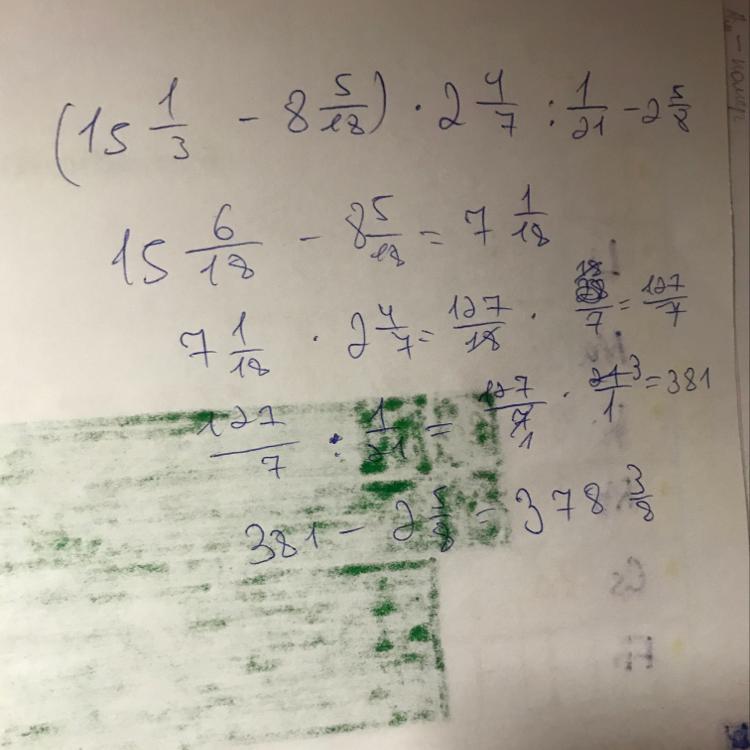 (15 1/3 - 8 5/18) · 2 4/7 : 1/21 - 2 5/8
15 6/18 - 8 5/18 = 7 1/18
7 1/18 · 2 4/7 = 127/18 · 18/7 = 127/7
127/7 : 1/21 = 127/7 1 · 21 3/1 = 381
381 - 2 5/8 = 378 3/8